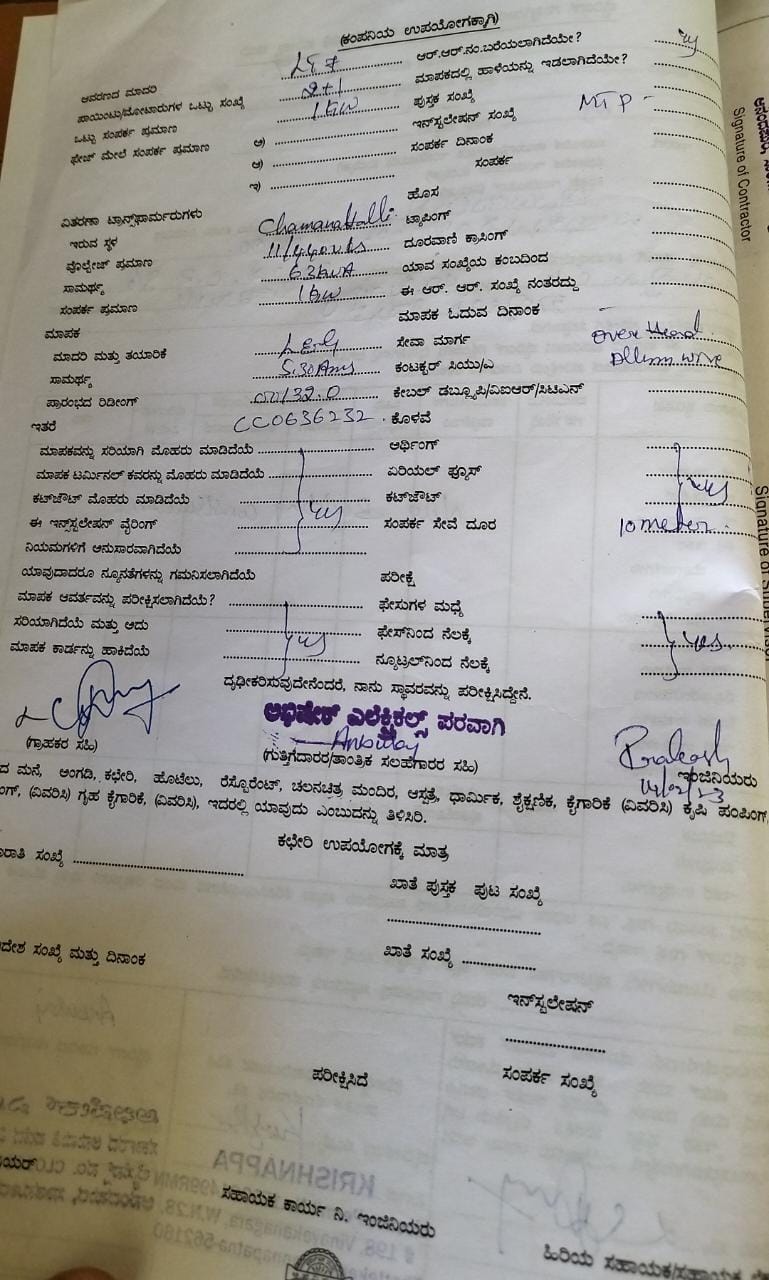 (ಕಂಪನಿಯ ಉಪಯೋಗಕ್ಕಾಗಿ)
ಆವರಣದ ಮಾದರಿ ಆರ್.ಆರ್.ನಂ.ಬರೆಯಲಾಗಿದೆಯೇ?
ಪಾಯಿಂಟು/ಮೋಟಾರುಗಳ ಒಟ್ಟು ಸಂಖ್ಯೆ 2+1 ಮಾಪಕದಲ್ಲಿ ಹಾಳೆಯನ್ನು ಇಡಲಾಗಿದೆಯೇ?
ಒಟ್ಟು ಸಂಪರ್ಕ ಪ್ರಮಾಣ 1 kw ಪುಸ್ತಕ ಸಂಖ್ಯೆ MTP -
ಫೇಜ್ ಮೇಲೆ ಸಂಪರ್ಕ ಪ್ರಮಾಣ ಅ) ಇನ್‌ಸ್ಟಲೇಷನ್ ಸಂಖ್ಯೆ
ಆ) ಸಂಪರ್ಕ ದಿನಾಂಕ
ಇ) ಸಂಪರ್ಕ
ಹೊಸ
ವಿತರಣಾ ಟ್ರಾನ್ಸ್‌ಫಾರ್ಮರುಗಳು ಟ್ಯಾಪಿಂಗ್
ಇರುವ ಸ್ಥಳ Chamanahalli ದೂರವಾಣಿ ಕ್ರಾಸಿಂಗ್
ವೊಲ್ಟೇಜ್ ಪ್ರಮಾಣ 11/440vls ಯಾವ ಸಂಖ್ಯೆಯ ಕಂಬದಿಂದ
ಸಾಮರ್ಥ್ಯ 63kVA ಈ ಆರ್. ಆರ್. ಸಂಖ್ಯೆ ನಂತರದ್ದು
ಸಂಪರ್ಕ ಪ್ರಮಾಣ 1 kw
ಮಾಪಕ ಮಾಪಕ ಓದುವ ದಿನಾಂಕ
ಮಾದರಿ ಮತ್ತು ತಯಾರಿಕೆ L&G ಸೇವಾ ಮಾರ್ಗ over Head
ಸಾಮರ್ಥ್ಯ 5.30Ams ಕಂಟಕ್ಟರ್ ಸಿಯು/ಎ Allum wire
ಪ್ರಾರಂಭದ ರಿಡೀಂಗ್ ಕೇಬಲ್ ಡಬ್ಲ್ಯೂಪಿ/ವಿಐಆರ್/ಸಿಟಿಎಸ್
ಇತರೆ CC0636232 ಕೊಳವೆ
ಮಾಪಕವನ್ನು ಸರಿಯಾಗಿ ಮೊಹರು ಮಾಡಿದೆಯೆ ಅರ್ಥಿಂಗ್
ಮಾಪಕ ಟರ್ಮಿನಲ್ ಕವರನ್ನು ಮೊಹರು ಮಾಡಿದೆಯೆ ಏರಿಯಲ್ ಫ್ಯೂಸ್
ಕಟ್‌ಜೌಟ್ ಮೊಹರು ಮಾಡಿದೆಯೆ yes ಕಟ್‌ಜೌಟ್ yes
ಈ ಇನ್‌ಸ್ಟಲೇಷನ್ ವೈರಿಂಗ್ ಸಂಪರ್ಕ ಸೇವೆ ದೂರ 10 meter
ನಿಯಮಗಳಿಗೆ ಅನುಸಾರವಾಗಿದೆಯೆ
ಯಾವುದಾದರೂ ನ್ಯೂನತೆಗಳನ್ನು ಗಮನಿಸಲಾಗಿದೆಯೆ ಪರೀಕ್ಷೆ
ಮಾಪಕ ಆವರ್ತವನ್ನು ಪರೀಕ್ಷಿಸಲಾಗಿದೆಯೆ? ಫೇಸುಗಳ ಮಧ್ಯೆ
ಸರಿಯಾಗಿದೆಯೆ ಮತ್ತು ಅದು yes ಫೇಸ್‌ನಿಂದ ನೆಲಕ್ಕೆ yes
ಮಾಪಕ ಕಾರ್ಡನ್ನು ಹಾಕಿದೆಯೆ ನ್ಯೂಟ್ರಲ್‌ನಿಂದ ನೆಲಕ್ಕೆ
ದೃಢೀಕರಿಸುವುದೇನೆಂದರೆ, ನಾನು ಸ್ಥಾವರವನ್ನು ಪರೀಕ್ಷಿಸಿದ್ದೇನೆ.
ಅಭಿಷೇಕ್ ಎಲೆಕ್ಟ್ರಿಕಲ್ಸ್ ಪರವಾಗಿ
Prakash
(ಗ್ರಾಹಕರ ಸಹಿ) (ಗುತ್ತಿಗೆದಾರರ/ತಾಂತ್ರಿಕ ಸಲಹೆಗಾರರ ಸಹಿ) ಇಂಜಿನಿಯರು
ದ ಮನೆ, ಅಂಗಡಿ, ಕಛೇರಿ, ಹೊಟೆಲು, ರೆಸ್ಟೋರೆಂಟ್, ಚಲನಚಿತ್ರ ಮಂದಿರ, ಆಸ್ಪತ್ರೆ, ಧಾರ್ಮಿಕ, ಶೈಕ್ಷಣಿಕ, ಕೈಗಾರಿಕೆ (ವಿವರಿಸಿ) ಕೃಷಿ ಪಂಪಿಂಗ್,
ಂಗ್, (ವಿವರಿಸಿ) ಗೃಹ ಕೈಗಾರಿಕೆ, (ವಿವರಿಸಿ), ಇದರಲ್ಲಿ ಯಾವುದು ಎಂಬುದನ್ನು ತಿಳಿಸಿರಿ.
ಕಛೇರಿ ಉಪಯೋಗಕ್ಕೆ ಮಾತ್ರ
ಾರಾತಿ ಸಂಖ್ಯೆ ಖಾತೆ ಪುಸ್ತಕ ಪುಟ ಸಂಖ್ಯೆ
ದೇಶ ಸಂಖ್ಯೆ ಮತ್ತು ದಿನಾಂಕ ಖಾತೆ ಸಂಖ್ಯೆ
ಇನ್‌ಸ್ಟಲೇಷನ್
ಪರೀಕ್ಷಿಸಿದೆ ಸಂಪರ್ಕ ಸಂಖ್ಯೆ
ಯರ್ ಸಹಾಯಕ ಕಾರ್ಯ ನಿ. ಇಂಜಿನಿಯರು
ಹಿರಿಯ ಸಹಾಯಕ/ಸಹಾಯಕ
Signature of Contractor
Signature of Supervisor